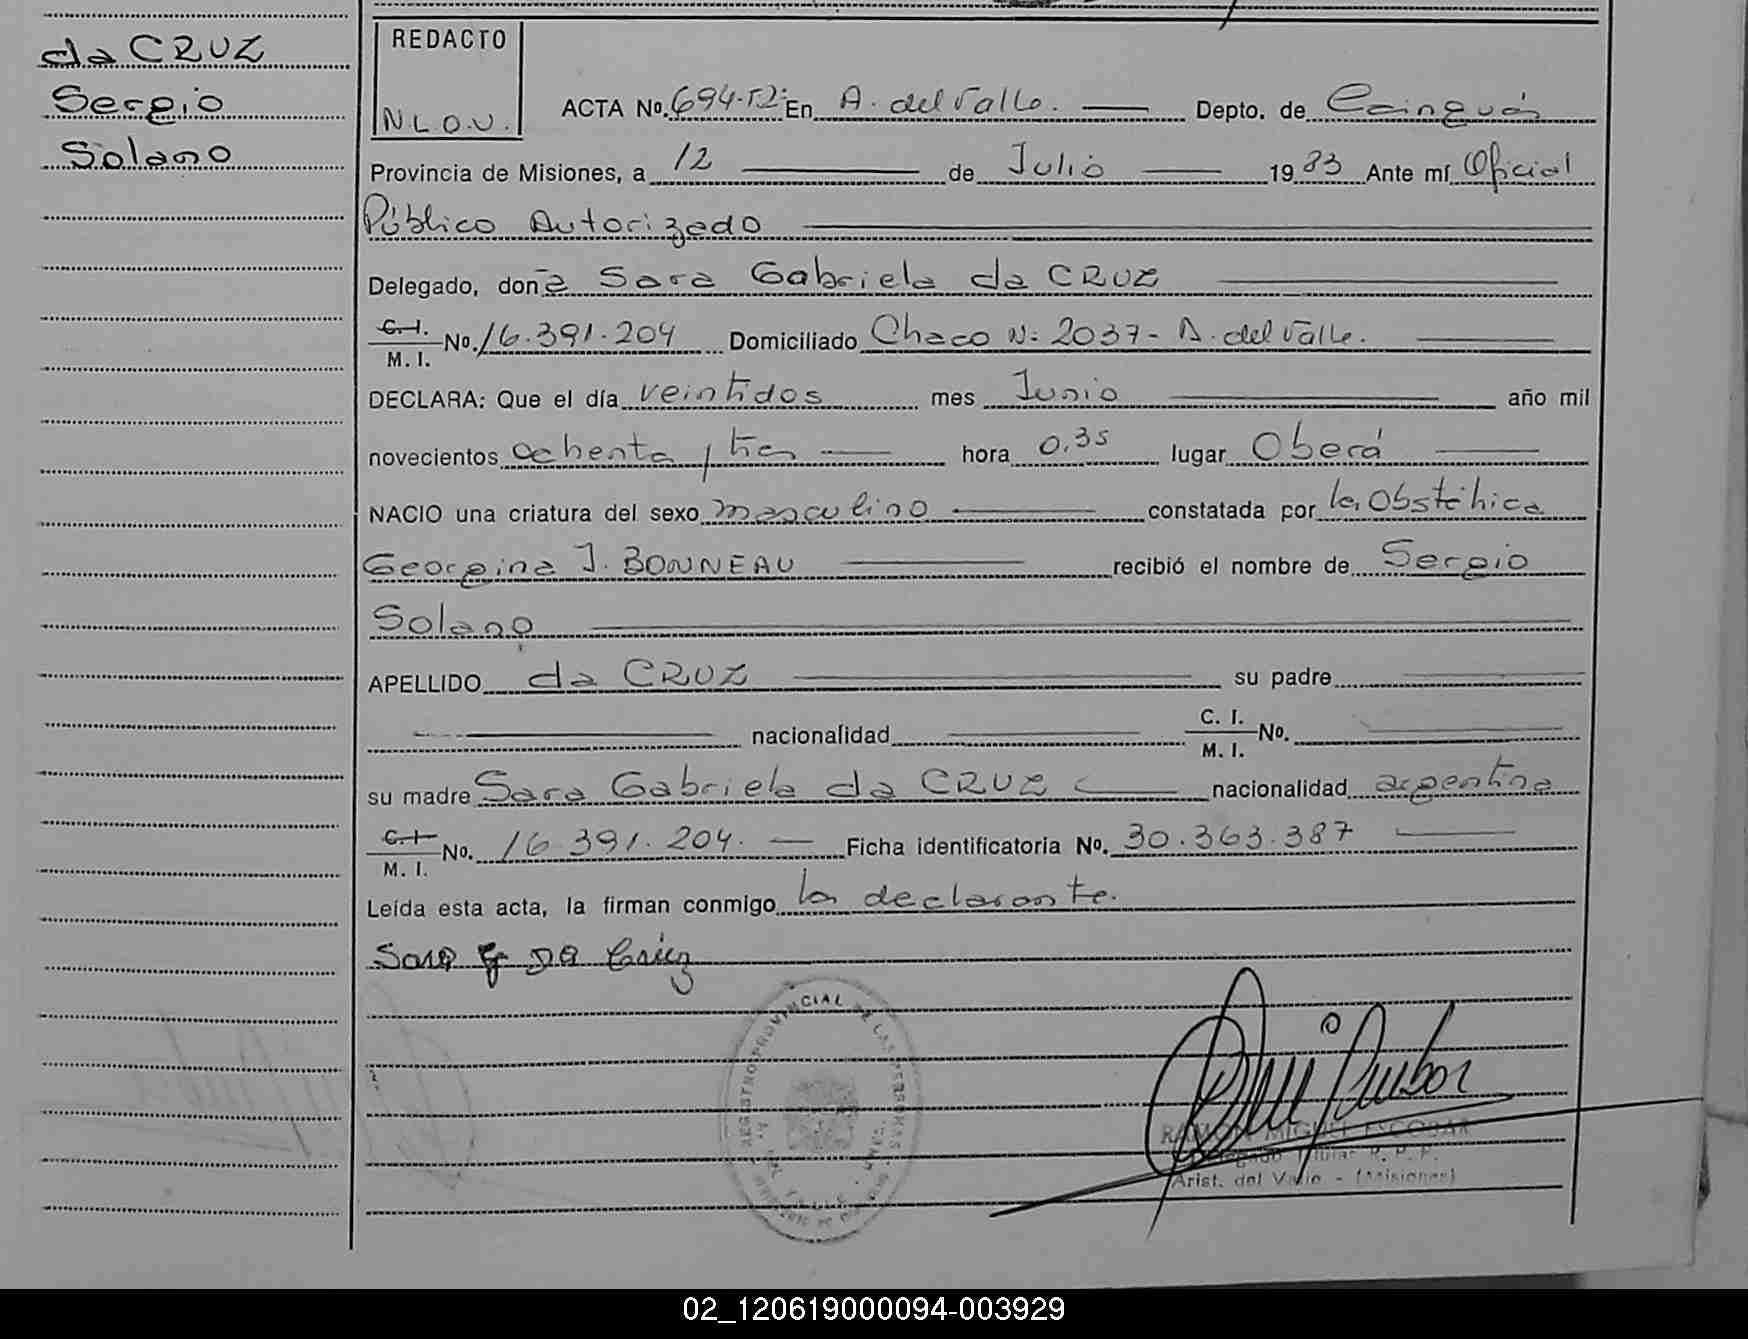 da CRUZ
Sergio
Solano
REDACTO
N.L.O.V.
ACTA No. 694-T2: En A. del Valle. Depto. de Cainguás
Provincia de Misiones, a 12 de Julio 1983 Ante mí Oficial
Público Autorizado
Delegado, doña Sara Gabriela da CRUZ
C.I. M.I. No. 16.391.204 Domiciliado Chaco N: 2037- A. del Valle.
DECLARA: Que el día veintidos mes Junio año mil
novecientos ochenta y tres hora 0,35 lugar Oberá
NACIO una criatura del sexo masculino constatada por la Obstétrica
Georgina J. BONNEAU recibió el nombre de Sergio
Solano
APELLIDO da CRUZ su padre
nacionalidad C. I. M. I. No.
su madre Sara Gabriela da CRUZ nacionalidad argentina
C.I. M. I. No. 16.391.204. Ficha identificatoria No. 30.363.387
Leída esta acta, la firman conmigo la declarante.
Sara G Da Cruz
REGISTRO PROVINCIAL DE LAS PERSONAS
RAMON MIGUEL ESCOBAR
Delegado Titular R. P. P.
Arist. del Valle - (Misiones)
02_120619000094-003929